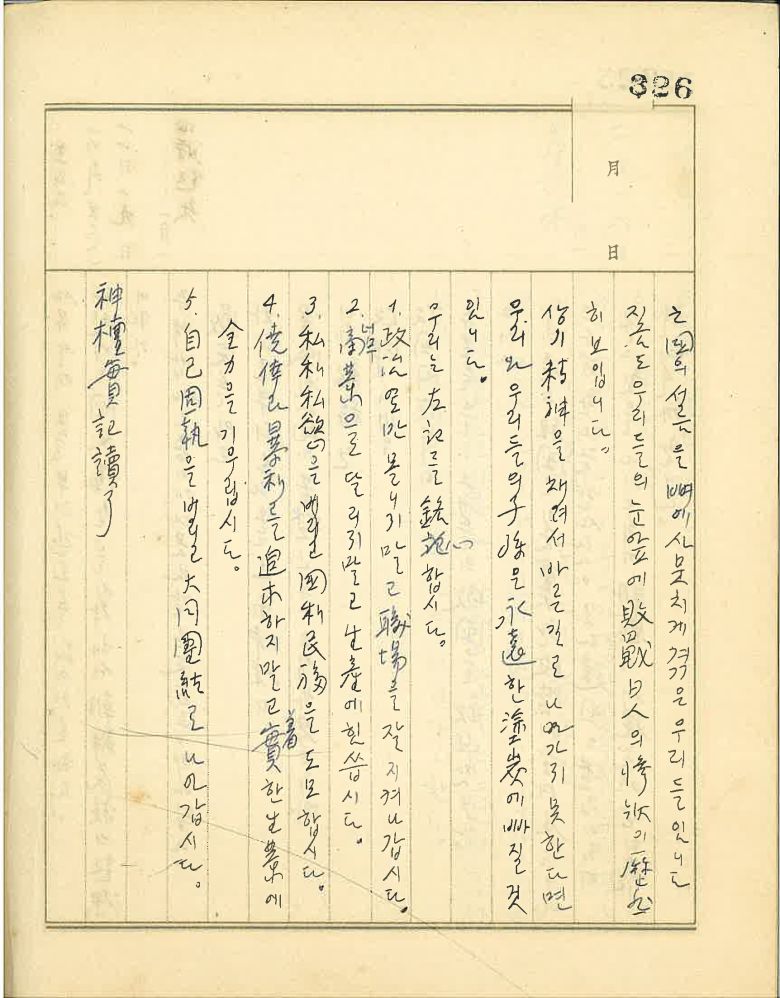 326
月
日
亡國의 설름을 뼈에 사못치게 격은 우리들임니다
지금도 우리들의 눈앞에 敗戰日人의 慘狀이 歷然
히 보입니다。
상기 精神을 채려서 바른길로 나가지 못한다면
우리와 우리들의 子孫은 永遠한 塗炭에 빠질것
임니다。
우리는 左記를 銘心합시다。
1. 政治열만 몰니지말고 職場을 잘 지켜나갑시다。
2. 너무 商業으로 달리지말고 生産에 힘씁시다。
3. 私利私慾心을 버리고 國利民福을 도모합시다。
4. 僥倖과 暴利를 追求하지말고 着實한 生業에
全力을 기우립시다。
5. 自己固執을 버리고 大同團結로 나아갑시다。
神檀實記讀了